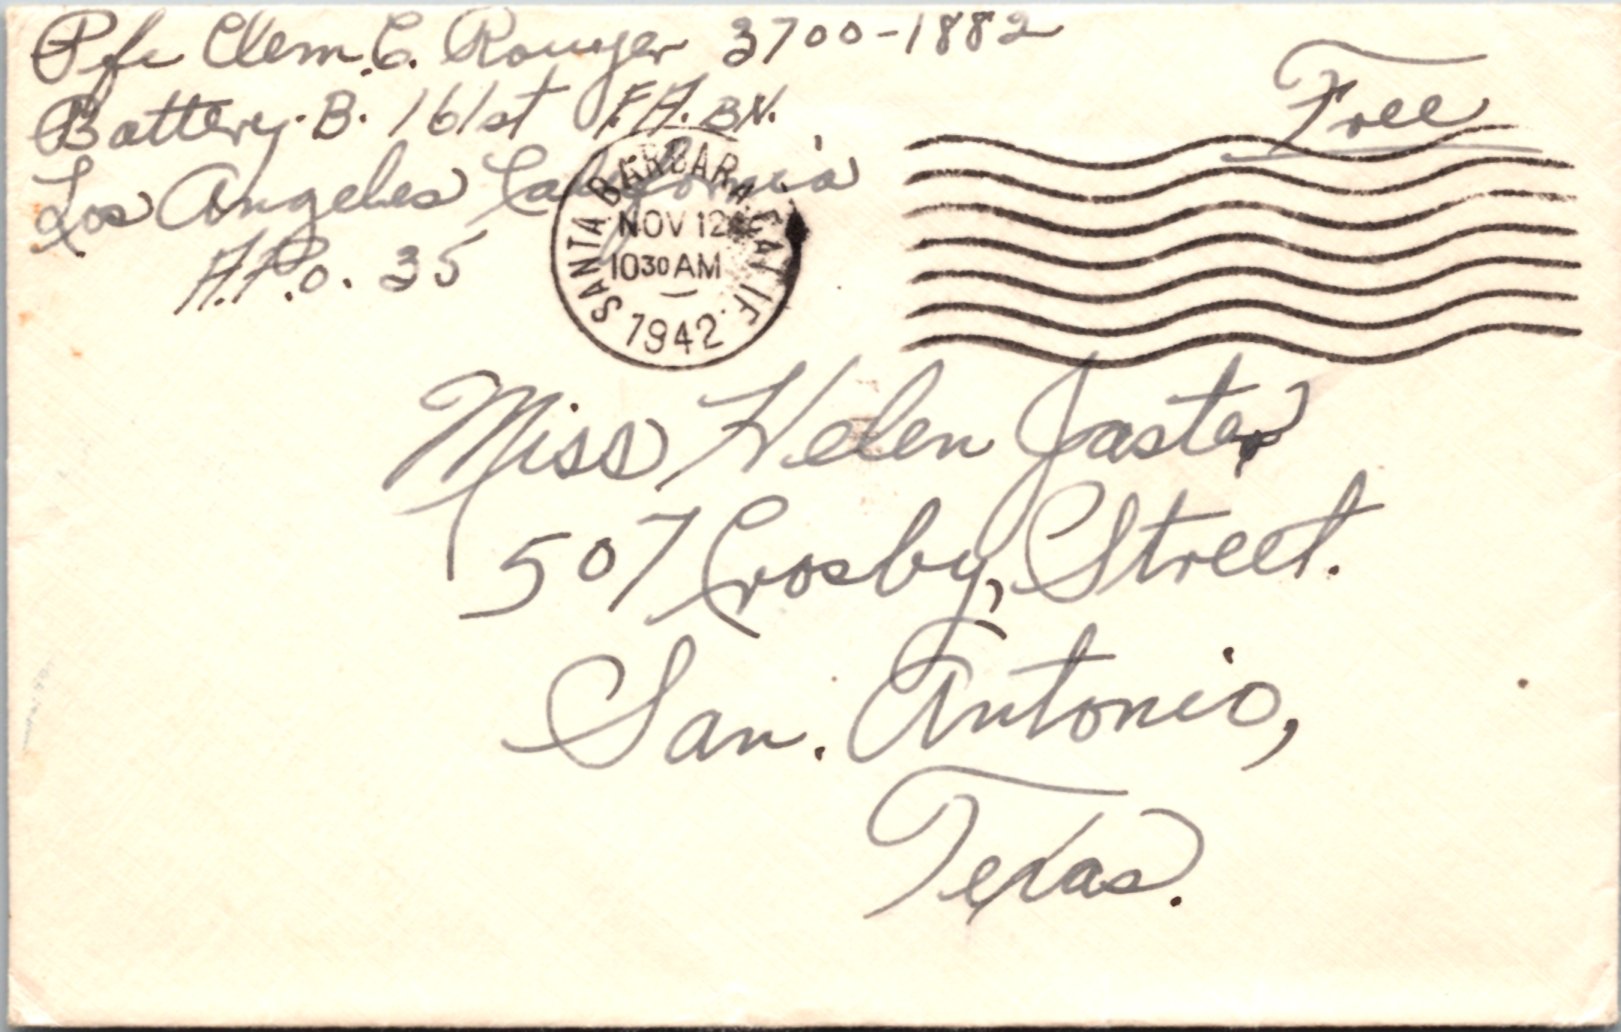 Pfc Clem. C. Rouger 3700-1882
Battery. B. 161st F.A. BN.
Los Angeles California
A.P.O. 35
Free
SANTA BARBARA, CALIF.
NOV 12
1030 AM
1942
Miss Helen Jaster
507 Crosby, Street.
San. Antonio,
Texas.